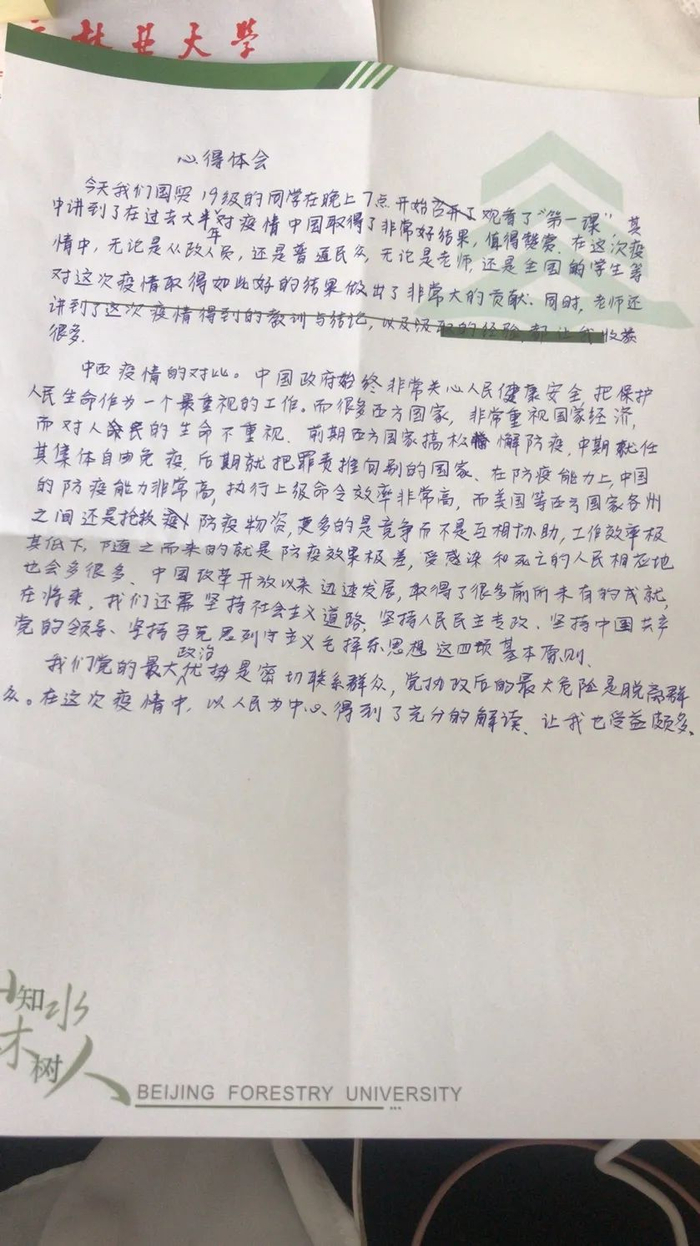 京林业大学
心得体会
今天我们国贸19级的同学在晚上7点开始召开了观看了“第一课”,其
中讲到了在过去大半年对疫情中国取得了非常好结果,值得赞赏.在这次疫
情中,无论是从政人员,还是普通民众,无论是老师,还是全国的学生等
对这次疫情取得如此好的结果做出了非常大的贡献.同时,老师还
讲到了这次疫情得到的教训与结论,以及汲取的经验,都让我收获
很多.
中西疫情的对比。中国政府始终非常关心人民健康安全,把保护
人民生命作为一个最重视的工作。而很多西方国家,非常重视国家经济,
而对人民的生命不重视.前期西方国家搞松懈防疫,中期就任
其集体自由免疫,后期就把罪责推向别的国家、在防疫能力上,中国
的防疫能力非常高,执行上级命令效率非常高,而美国等西方国家各州
之间还是抢救防疫物资,更多的是竞争而不是互相协助,工作效率极
其低下,随之而来的就是防疫效果极差,受感染和死亡的人民相应地
也会多很多、中国改革开放以来迅速发展,取得了很多前所未有的成就,
在将来,我们还需坚持社会主义道路.坚持人民民主专政、坚持中国共产
党的领导、坚持马克思列宁主义毛泽东思想这四项基本原则.
我们党的最大政治优势是密切联系群众,党执政后的最大危险是脱离群
众。在这次疫情中,以人民为中心得到了充分的解读、让我也受益颇多、
知水
木树人
BEIJING FORESTRY UNIVERSITY